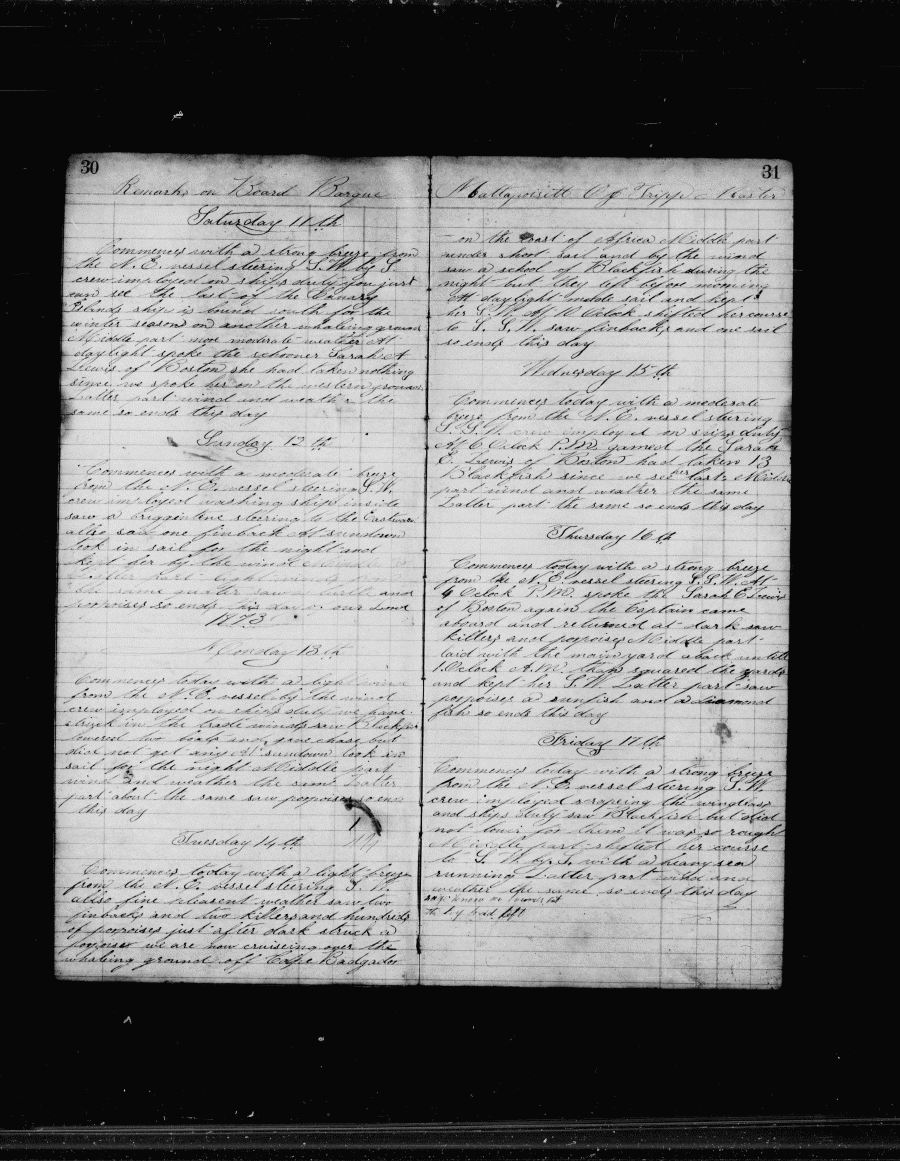 30
Remarks on Board Barque
Saturday 11th
Commences with a strong breeze from
the N.E. vessel steering S.W. by S.
crew employed on ships duty you just
can see the last of the Canary
Islands ship is bound south for the
winter season on another whaleing ground
Middle part more moderate weather At
daylight spoke the schooner Sarah
Lewis of Boston she had taken nothing
since we spoke her on the western ground
Latter part wind and weather the
same so ends this day
Sunday 12th
Commences with a moderate breze
from the N.E. vessel steering S.W.
crew imployed washing ship inside
saw a briggintine steering to the Eastward
allso saw one finback At sundown
took in sail for the night and
kept her by the wind Middle
Latter part light winds from
the same quarter saw and
porpoises so ends this day our Lord
1873
Monday 13th
Commences today with a light
from the N.E. vessel by the wind
crew imployed on ships duty we have
struck in the trade winds saw Blackfish
lowered two boats and gave chase but
did not get any At sundown took in
sail for the night Middle part
wind and weather the same Latter
part about the same saw porpoises so ends
this day
Tuesday 14th
Commences today with a light breeze
from the N.E. vessel steering S.W.
allso fine pleasent weather saw two
finbacks and two killers and hundreds
of porpoises just after dark struck a
porpoises we are now cruiseing over the
whaleing ground off Cape Badgador
31
Mattapoisett Tripp Master
on the coast of Africa Middle part
under short sail and by the wind
saw a school of Blackfish during the
night but they left before morning
At daylight made sail and kept
her S.W. At 10 Oclock shifted her course
to S.S.W. saw finbacks and one sail
so ends this day
Wednesday 15th
Commences today with a moderate
breze from the N.E. vessel steering
S.S.W. crew imployed on ships duty
At 6 Oclock P.M. gamed the Sarah
E. Lewis of Boston had taken 13
Blackfish since we see her last Middle
part wind and weather the same
Latter part the same so ends this day
Thursday 16th
Commences today with a strong breeze
from the N.E. vessel steering S.S.W. At
4 Oclock P.M. spoke the Sarah E Lewis
of Boston again the Captain came
aboard and returned at dark saw
killers and porpoises Middle part
laid with the main yard aback untill
1 Oclock A.M. then squared the yards
and kept her S.W. Latter part saw
porpoises a sunfish and a diamond
fish so ends this day
Friday 17th
Commences today with a strong breeze
from the N.E. vessel steering S.W.
crew imployed scraping the windlass
and ships duty saw Blackfish but did
not lower for them it was so rough
Middle part shifted her course
to S.W. by S. with a heavy sea
running Latter part wind and
weather the same so ends this day
had left